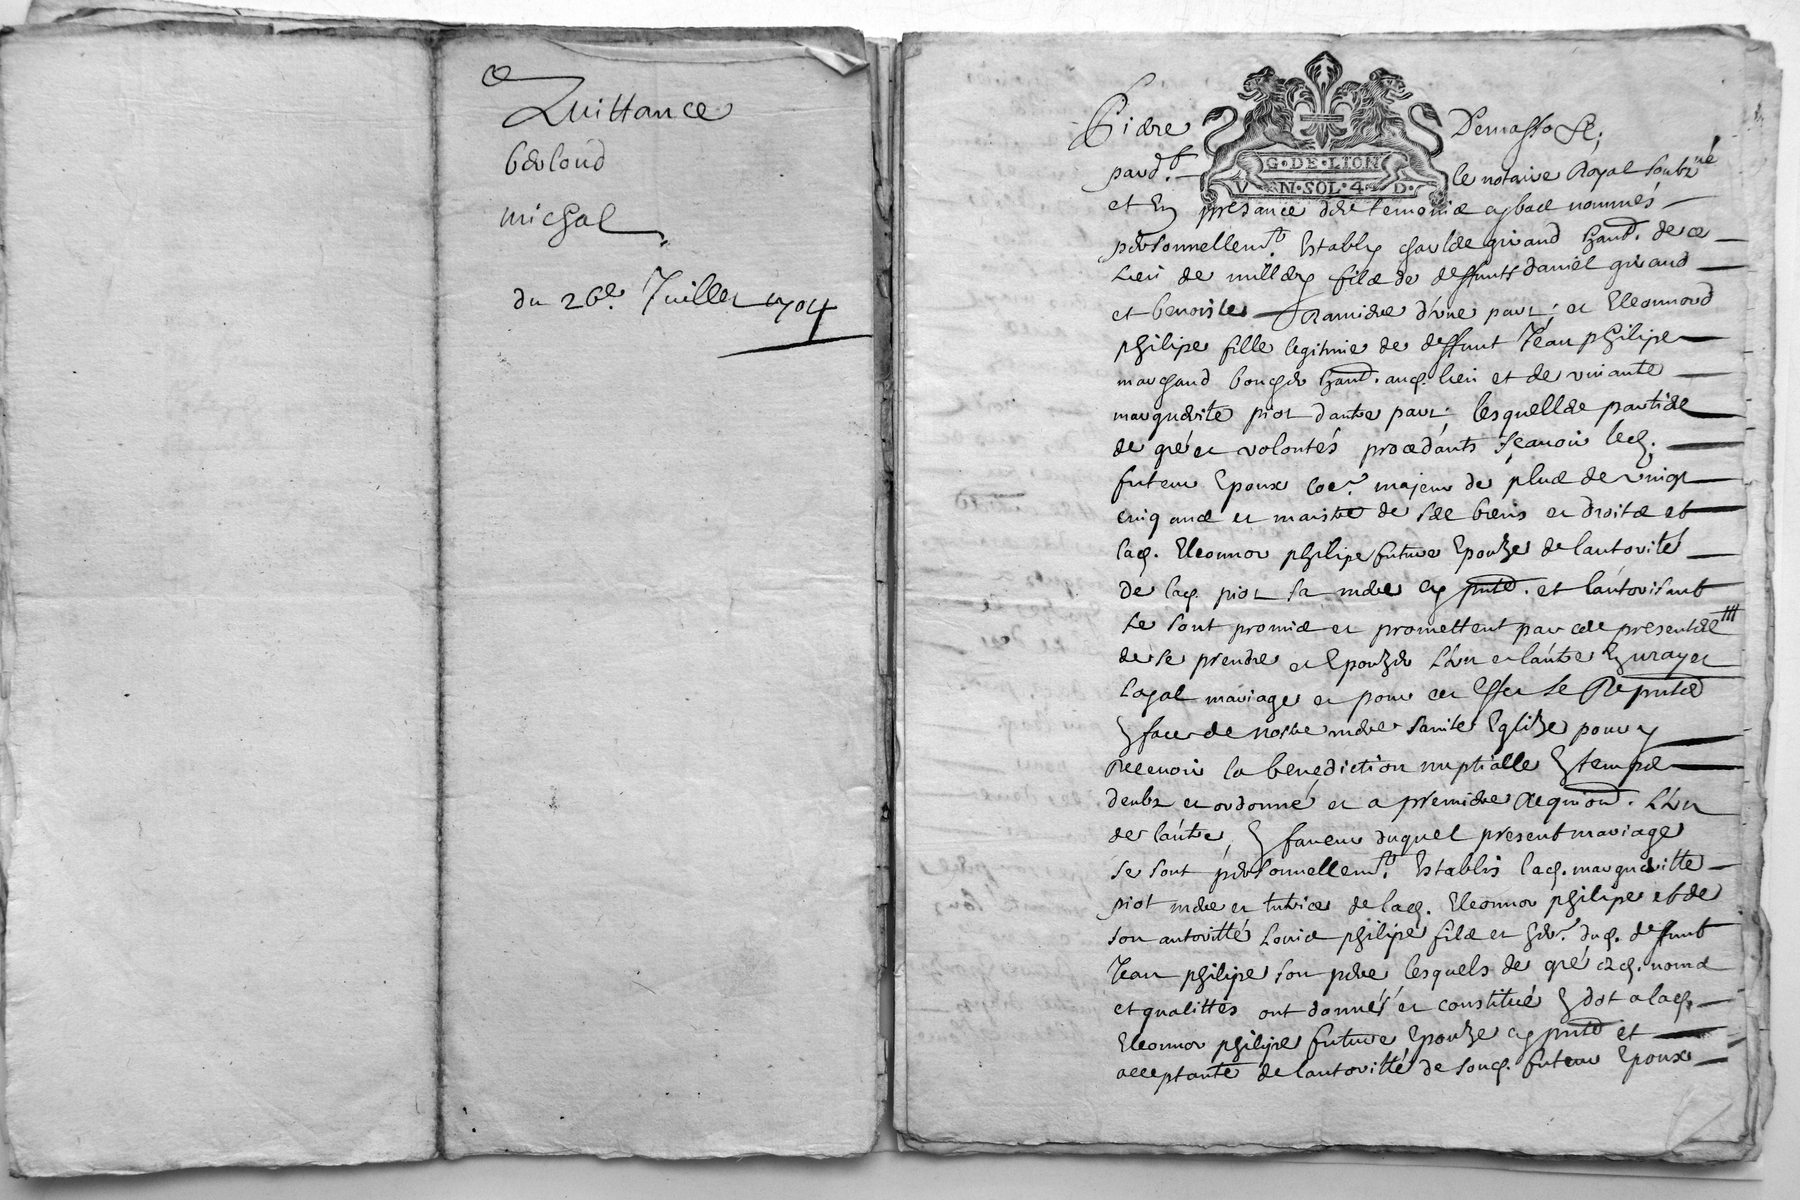 Quittance
berloud
michal
du 26e Juillet 1704
G·DE·LION
VN·SOL·4·D·
pard.t le notaire Royal soubz.né
et En presance des temoins cy bas nommés
personnellem.t Estably charles giraud hant. de ce
Lieu de millery fils de deffunts daniel giraud
et benoiste ramiere d'une part; et Eleonnord
philipe fille legitime de deffunt Jean philipe
marchand boucher hant. aud. lieu et de vivante
marguerite piot dautre part; lesquelles parties
de gré et volontés procedants scavoir led.
futeur Epoux co.e majeur de plus de vingt
cinq ans et maistre de ses biens et droits et
lad. Eleonnor philipe future Epouze de lautorité
de lad. piot sa mere cy pnte. et lautorisant
se sont promis et promettent par ces presentes
de se prendre et Epouzer L'un et lautre En vray et
Loyal mariage et pour cet Effet se Repnter
En face de nostre mere sainte Eglize pour y
Recevoir la benediction nuptialle En temps
deubz et ordonné et a premiere Requion. L'un
de lautre, En faveur duquel present mariage
se sont personnellem.t Establis lad. margueritte
piot mere et tutrice de lad. Eleonnor philipe et de
son autoritté Louis philipe fils et her. dud. deffunt
Jean philipe son pere lesquels de gré esd. noms
et qualittés ont donnés et constitué En dot a lad.
Eleonnor philipe future Epouze cy pnte et
acceptante de lautoritté de soud. futeur Epoux